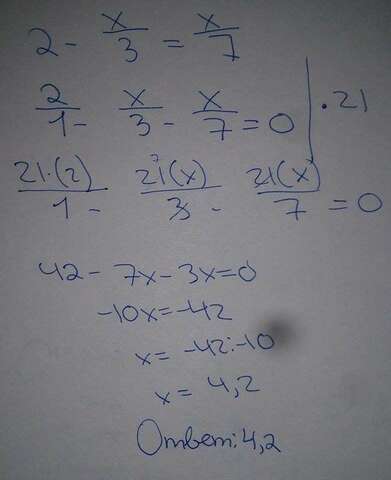 2 - x/3 = x/7
2/1 - x/3 - x/7 = 0 | · 21
21·(2)/1 - 21(x)/3 - 21(x)/7 = 0
42 - 7x - 3x = 0
-10x = -42
x = -42:-10
x = 4,2
Ответ: 4,2